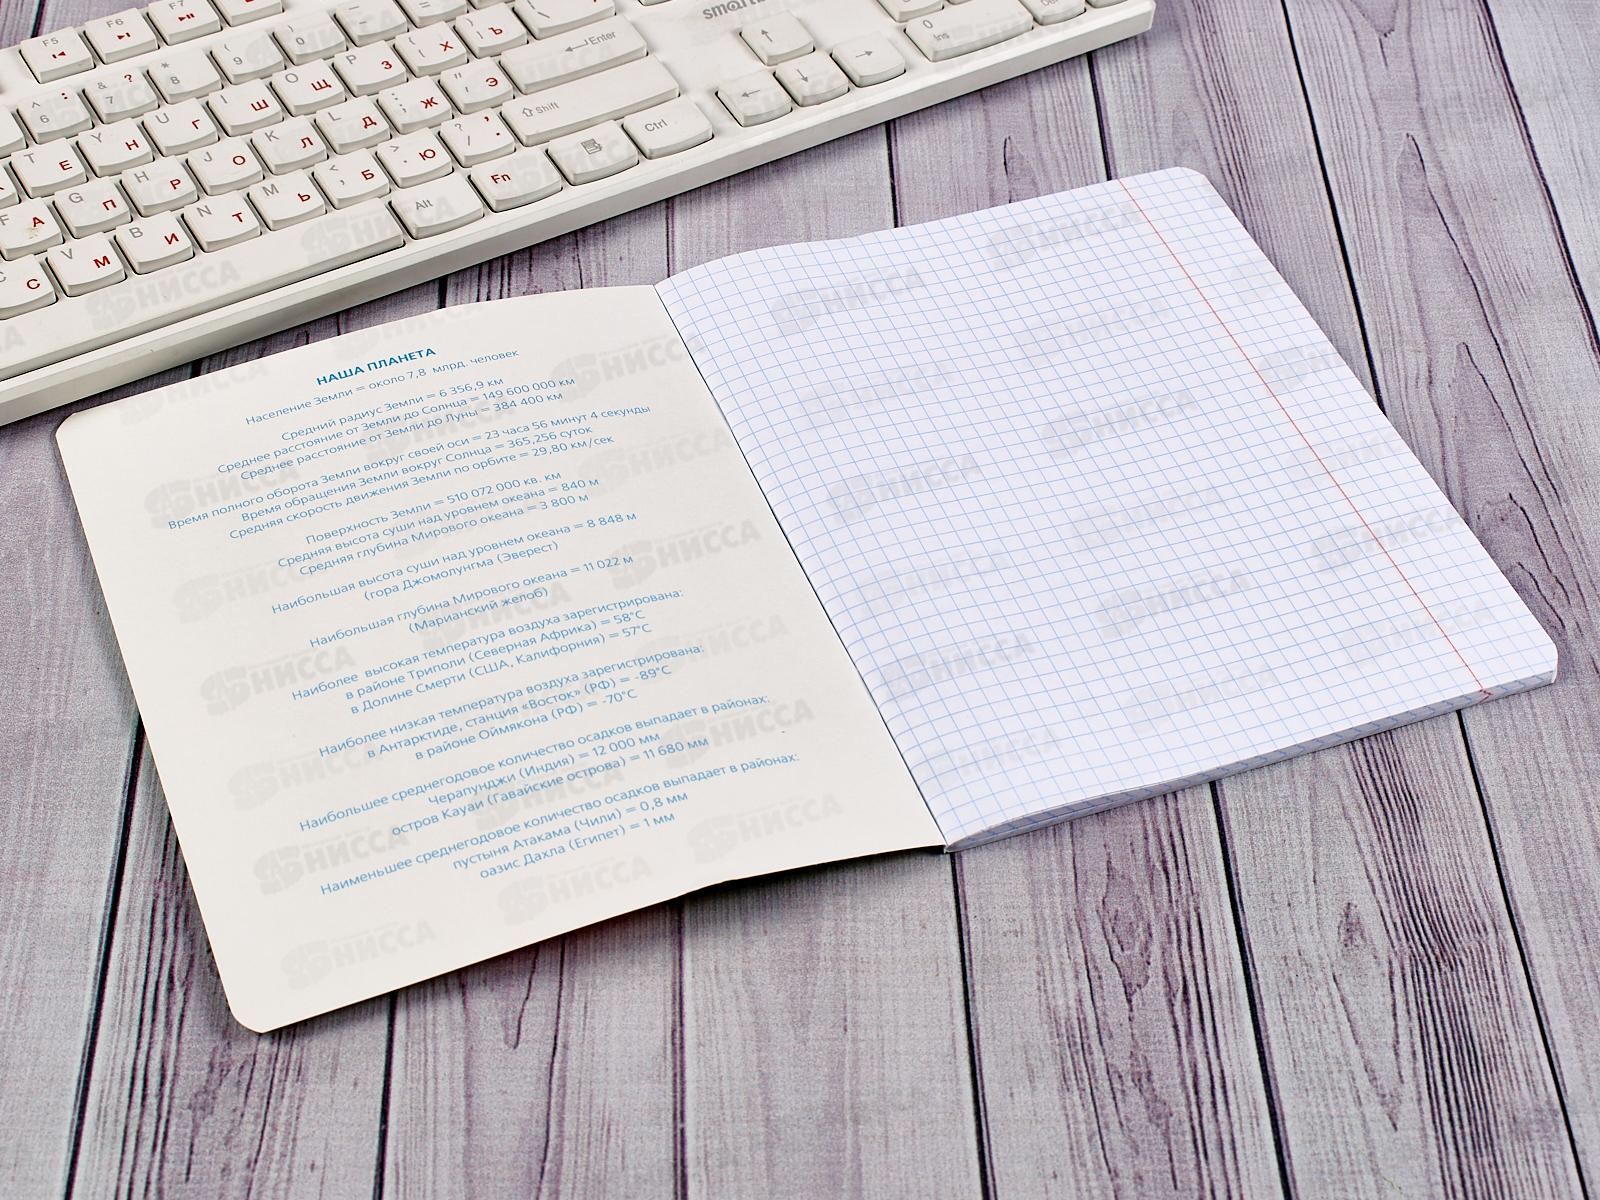 НАША ПЛАНЕТА
Население Земли = около 7,8 млрд. человек
Средний радиус Земли = 6 356,9 км
Среднее расстояние от Земли до Солнца = 149 600 000 км
Среднее расстояние от Земли до Луны = 384 400 км
Время полного оборота Земли вокруг своей оси = 23 часа 56 минут 4 секунды
Время обращения Земли вокруг Солнца = 365,256 суток
Средняя скорость движения Земли по орбите = 29,80 км/сек
Поверхность Земли = 510 072 000 кв. км
Средняя высота суши над уровнем океана = 840 м
Средняя глубина Мирового океана = 3 800 м
Наибольшая высота суши над уровнем океана = 8 848 м
(гора Джомолунгма (Эверест)
Наибольшая глубина Мирового океана = 11 022 м
(Марианский желоб)
Наиболее высокая температура воздуха зарегистрирована:
в районе Триполи (Северная Африка) = 58°С
в Долине Смерти (США, Калифорния) = 57°С
Наиболее низкая температура воздуха зарегистрирована:
в Антарктиде, станция «Восток» (РФ) = -89°С
в районе Оймякона (РФ) = -70°С
Наибольшее среднегодовое количество осадков выпадает в районах:
Черапунджи (Индия) = 12 000 мм
остров Кауаи (Гавайские острова) = 11 680 мм
Наименьшее среднегодовое количество осадков выпадает в районах:
пустыня Атакама (Чили) = 0,8 мм
оазис Дахла (Египет) = 1 мм
F5
F6
F7
Enter
Shift
Ctrl
Alt
Fn
Ins
НИССА